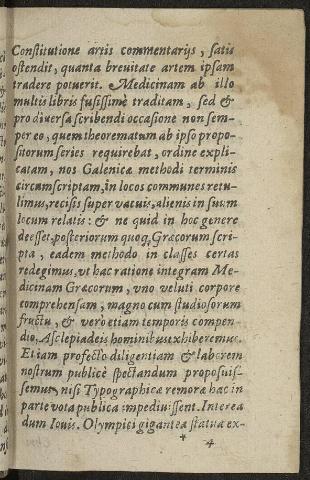 Constitutione artis commentarijs, satis
ostendit, quanta brevitate artem ipsam
tradere potuerit. Medicinam ab illo
multis libris fusissimè traditam, sed &
pro diversa scribendi occasione non sem-
per eo, quem theorematum ab ipso propo-
sitorum series requirebat, ordine expli-
catam, nos Galenicæ methodi terminis
circumscriptam, in locos communes retu-
limus, recisis supervacuis, alienis in suum
locum relatis: & ne quid in hoc genere
deesset, posteriorum quoq; Græcorum scri-
pta, eadem methodo in classes certas
redegimus, ut hac ratione integram Me-
dicinam Græcorum, uno veluti corpore
comprehensam, magno cum studiosorum
fructu, & vero etiam temporis compen
dio, Asclepiadeis hominibus exhiberemus.
Etiam profecto diligentiam & laborem
nostrum publicè spectandum proposuis-
semus, nisi Typographicæ remoræ hac in
parte vota publica impedivissent. Interea
dum Iovis Olympici gigantea statua ex-
* 4